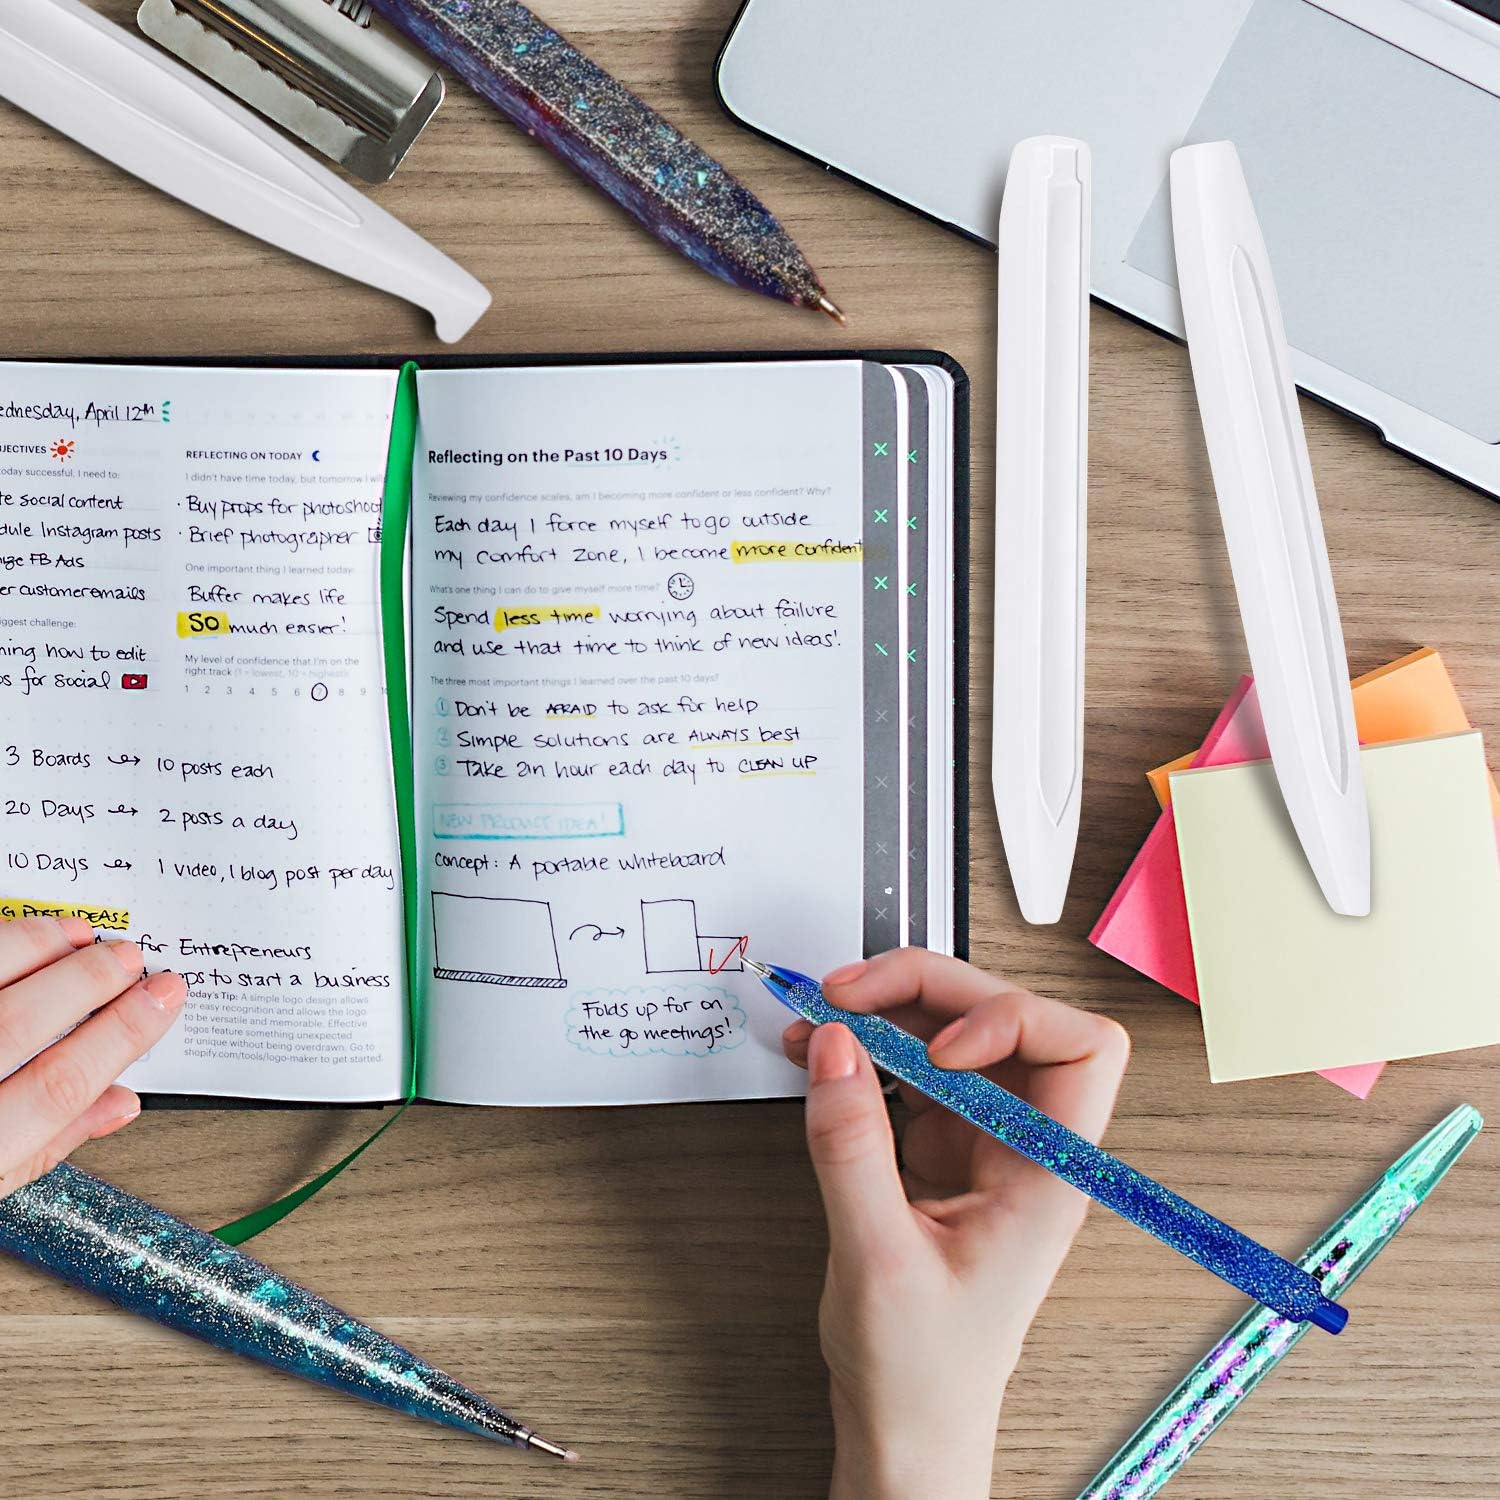 ednesday, April 12th
JECTIVES
oday successful, I need to:
te social content
dule Instagram posts
FB Ads
er customer emails
iggest challenge:
ning how to edit
os for social
REFLECTING ON TODAY
I didn't have time today, but tomorrow I will
· Buy props for photoshoot
· Brief photographer
One important thing I learned today:
Buffer makes life
So much easier!
My level of confidence that I'm on the
right track (1 = lowest, 10 = highest):
1 2 3 4 5 6 7 8 9
3 Boards → 10 posts each
20 Days → 2 posts a day
10 Days → 1 video, 1 blog post per day
G POST IDEAS:
for Entrepreneurs
ps to start a business
Today's Tip: A simple logo design allows
for easy recognition and allows the logo
to be versatile and memorable. Effective
logos feature something unexpected
or unique without being overdrawn. Go to
shopify.com/tools/logo-maker to get started.
Reflecting on the Past 10 Days
Reviewing my confidence scales, am I becoming more confident or less confident? Why?
Each day I force myself to go outside
my comfort zone, I become more confident
What's one thing I can do to give myself more time?
Spend less time worrying about failure
and use that time to think of new ideas!
The three most important things I learned over the past 10 days?
1 Don't be AFRAID to ask for help
2 Simple solutions are ALWAYS best
3 Take an hour each day to CLEAN UP
NEW PRODUCT IDEA!
Concept: A portable whiteboard
Folds up for on
the go meetings!